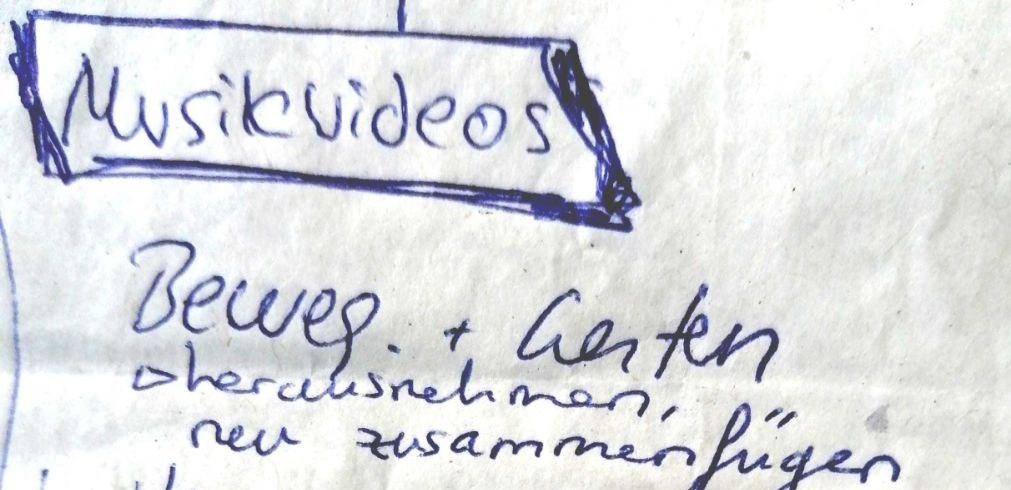 Musikvideos
Beweg. + Gesten
herausnehmen,
neu zusammenfügen